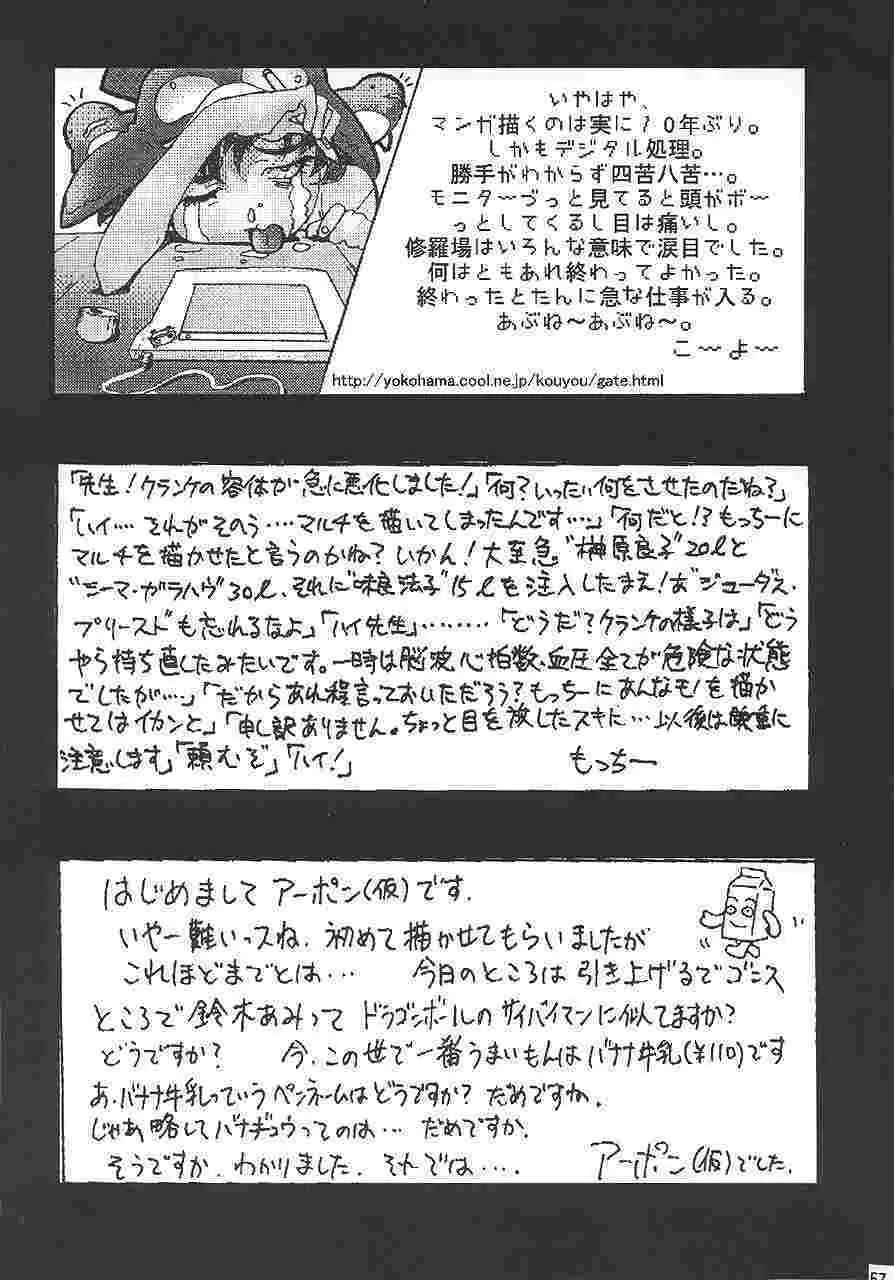 いやはや、
マンガ描くのは実に10年ぶり。
しかもデジタル処理。
勝手がわからず四苦八苦…。
モニターづっと見てると頭がボ〜
っとしてくるし目は痛いし。
修羅場はいろんな意味で涙目でした。
何はともあれ終わってよかった。
終わったとたんに急な仕事が入る。
あぶね〜あぶね〜。
こ〜よ〜
http://yokohama.cool.ne.jp/kouyou/gate.html
「先生!クランケの容体が急に悪化しました!」「何?いったい何をさせたのだね?」
「ハイ…. それがそのう‥‥マルチを描いてしまったんです….」「何だと!?もっちーに
マルチを描かせたと言うのかね?いかん!大至急"榊原良子"20lと
"ニーマ・ガラハヴ"30l、それに"味良法子"15lを注入したまえ!あ"ジューダス・
プリースト"も忘れるなよ」「ハイ先生」………「どうだ?クランケの様子は」「どう
やら持ち直したみたいです。一時は脳波、心拍数、血圧全てが危険な状態
でしたが….」「だからあれ程言っておいただろう?もっちーにあんなモノを描か
せてはイカンと」「申し訳ありません。ちょっと目を放したスキに…以後は慎重に
注意します」「頼むぞ」「ハイ!」 もっちー
はじめまして アーポン(仮)です.
いやー難いっスね. 初めて描かせてもらいましたが
これほどまでとは… 今日のところは引き上げるでゴンス
ところで鈴木あみって ドラゴンボールのサイバイマンに似てますか?
どうですか? 今、この世で一番うまいもんはバナナ牛乳(¥110)です
あ、バナナ牛乳っていうペンネームはどうですか? だめですね.
じゃあ略してバナギュウってのは… だめですか.
そうですか. わかりました. それでは…. アーポン(仮)でした.
67